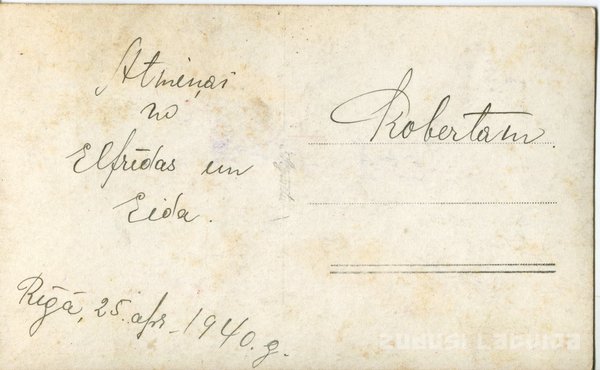 Atmiņai
no
Elfrīdas un
Eida.
Rīgā, 25. apr. 1940. g.
Robertam.
ZUDUSĪ LATVIJA